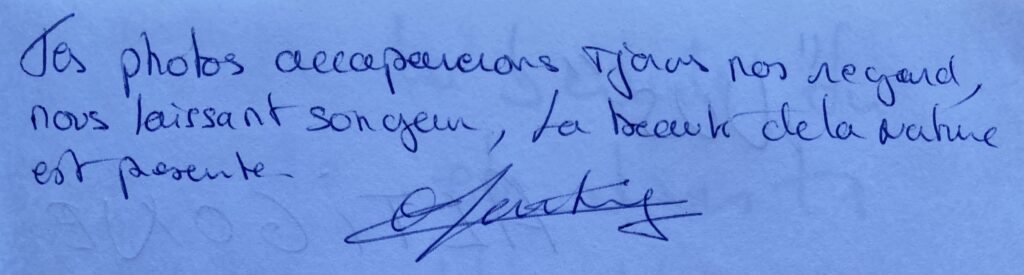 Tes photos accaparerons Tjours nos regard,
nous laissant songeur, la beaute de la nature
est presente.